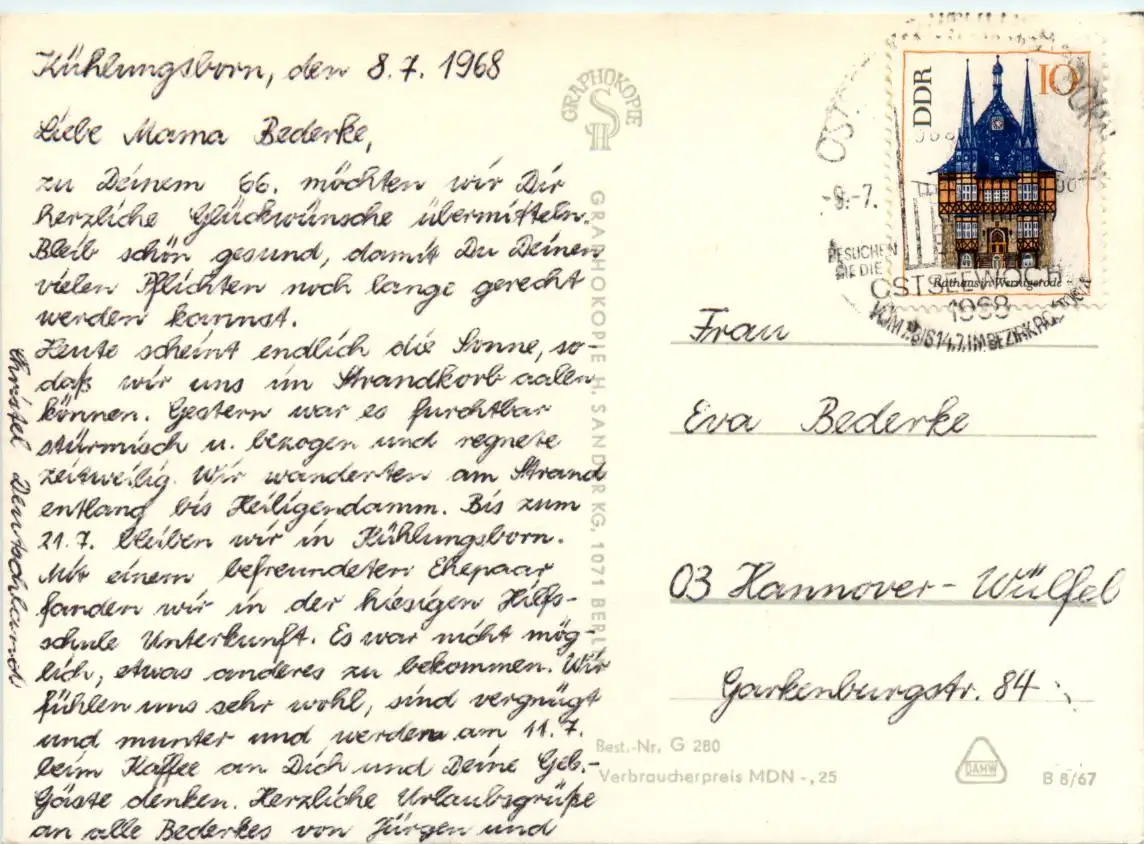 Kühlungsborn, den 8.7.1968
Liebe Mama Bederke,
zu Deinem 66. möchten wir Dir
herzliche Glückwünsche übermitteln.
Bleib schön gesund, damit Du Deinen
vielen Pflichten noch lange gerecht
werden kannst.
Heute scheint endlich die Sonne, so
daß wir uns im Strandkorb aalen
können. Gestern war es furchtbar
stürmisch u. bezogen und regnete
zeitweilig. Wir wanderten am Strand
entlang bis Heiligendamm. Bis zum
21.7. bleiben wir in Kühlungsborn.
Mit einem befreundeten Ehepaar
fanden wir in der hiesigen Hilfs-
schule Unterkunft. Es war nicht mög-
lich, etwas anderes zu bekommen. Wir
fühlen uns sehr wohl, sind vergnügt
und munter und werden am 11.7.
beim Kaffee an Dich und Deine Geb.-
Gäste denken. Herzliche Urlaubsgrüße
an alle Bederkes von Jürgen und
Christel Deutschland
GRAPHOKOPIE
H
S
GRAPHOKOPIE H. SANDER KG, 1071 BERLIN
DDR
10
Rathaus in Wernigerode
9.-7.
BESUCHEN
SIE DIE
OSTSEEWOCHE
1968
VOM 7. BIS 14.7. IM BEZIRK ROSTOCK
Frau
Eva Bederke
03 Hannover-Wülfel
Garkenburgstr. 84
Best.-Nr. G 280
Verbraucherpreis MDN -,25
DAHW
B 8/67